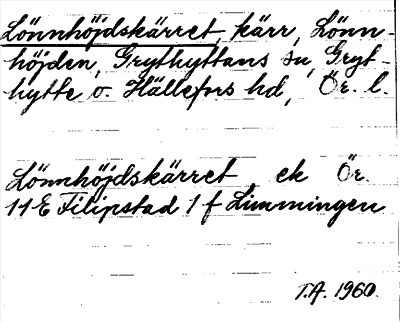 Lönnhöjdskärret, kärr, Lönn-
höjden, Grythyttans sn, Gryt-
hytte o. Hällefors hd, Ör. l.
Lönnhöjdskärret ek Ör.
11E Filipstad 1 f Limmingen
T.A. 1960.